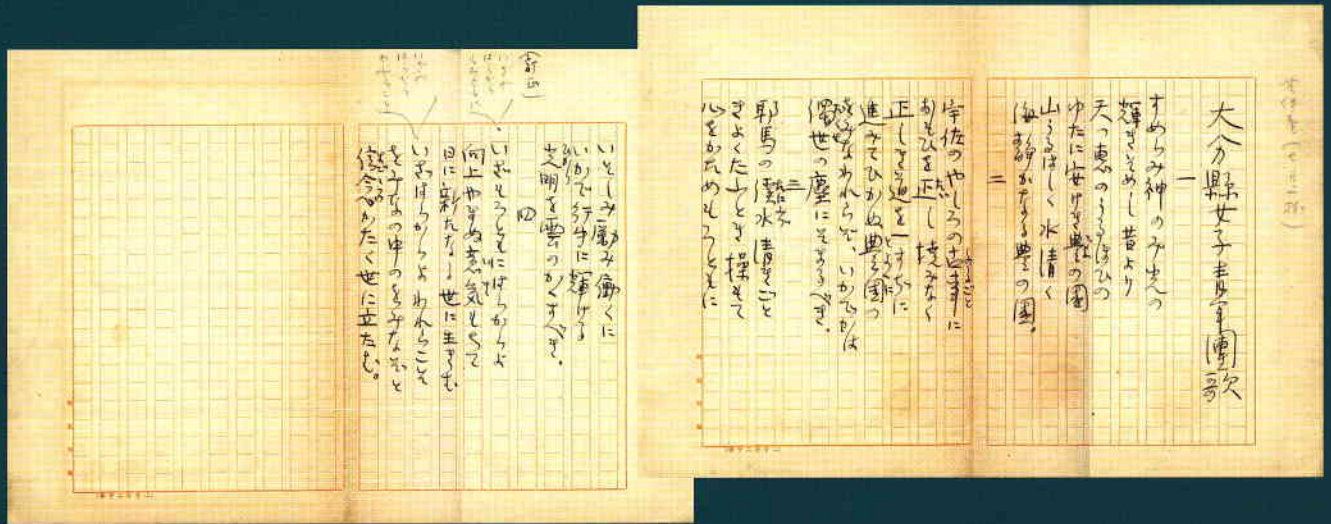 大分縣女子青年團歌
一
すめらみ神のみ光の
輝きそめし昔より
天つ恵のうるほひの
ゆたに安けき豊の國
山うるはしく水清く
海静かなる豊の國。
二
宇佐のやしろの古事に
ふること
おもひを正し撓みなく
正しき道を一すぢに
進みてひかぬ豊国の
とよくに
をみなわれらぞ、いかでかは
濁世の塵にそまるべき。
三
耶馬の溪水清きごと
きよくたふとき操もて
心をかためもろともに
いとしみ勵み働くに
いかで行手に輝ける
光明を雲のかくすべき。
ひかり
四
いざもろともにはらからよ
向上やまぬ意気をもて
日に新たなる世に生きむ
いざはらからよわれらこそ
をみなの中のをみなぞと
信念かたく世に立たむ。